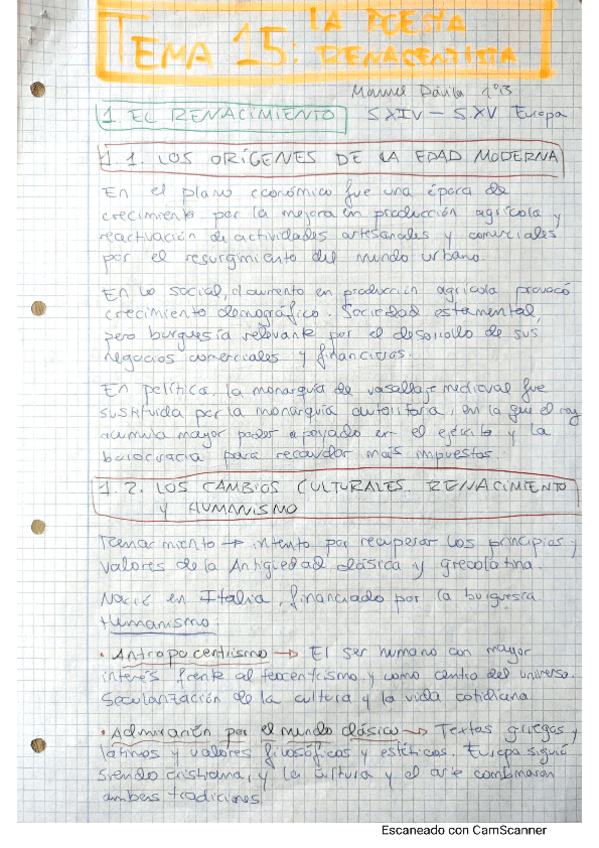 TEMA 15: LA POESÍA
RENACENTISTA
Manuel Dávila 1ºB
1. EL RENACIMIENTO S.XIV - S.XV Europa
1.1. LOS ORÍGENES DE LA EDAD MODERNA
En el plano económico fue una época de
crecimiento por la mejora en producción agrícola y
reactivación de actividades artesanales y comerciales
por el resurgimiento del mundo urbano.
En lo social, el aumento en producción agrícola provocó
crecimiento demográfico. Sociedad estamental,
pero burguesía relevante por el desarrollo de sus
negocios comerciales y financieros.
En política, la monarquía de vasallaje medieval fue
sustituida por la monarquía autoritaria, en la que el rey
acumula mayor poder apoyado en el ejército y la
burocracia para recaudar más impuestos.
1.2. LOS CAMBIOS CULTURALES. RENACIMIENTO
Y HUMANISMO
Renacimiento → intento por recuperar los principios y
valores de la Antigüedad clásica y grecolatina.
Nació en Italia, financiado por la burguesía
Humanismo:
· Antropocentrismo → El ser humano con mayor
interés frente al teocentrismo y como centro del universo.
Secularización de la cultura y la vida cotidiana
· Admiración por el mundo clásico → Textos griegos,
latinos y valores filosóficos y estéticos. Europa siguió
siendo cristiana, y la cultura y el arte combinaron
ambas tradiciones.
Escaneado con CamScanner